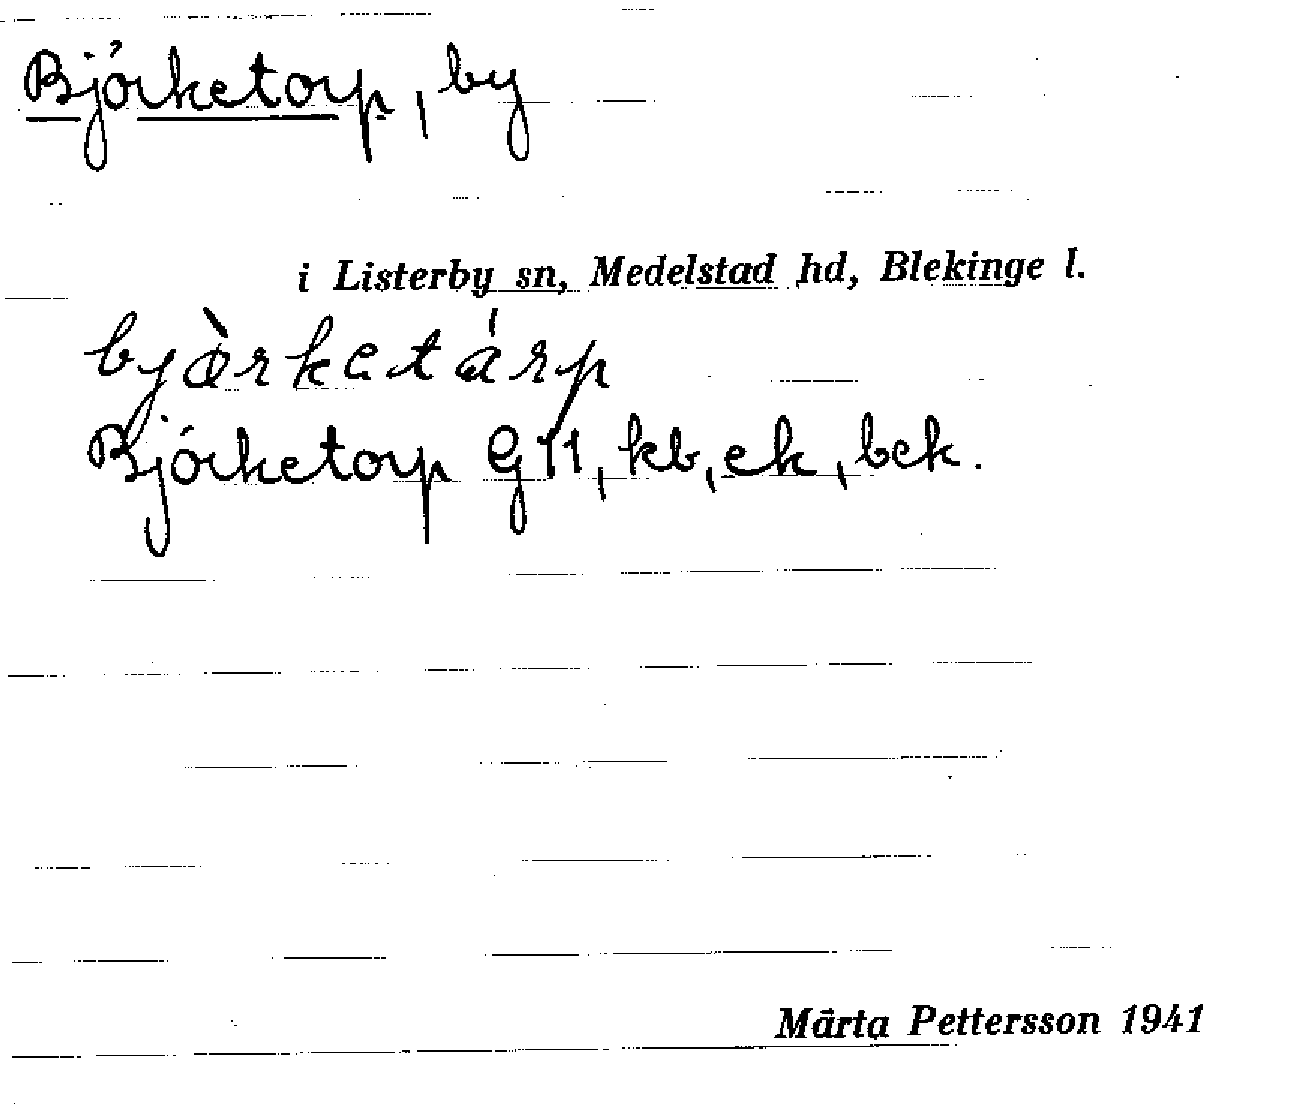 Björketorp, by
i Listerby sn, Medelstad hd, Blekinge l.
Björketorp G11, kb, ek, bek.
Märta Pettersson 1941